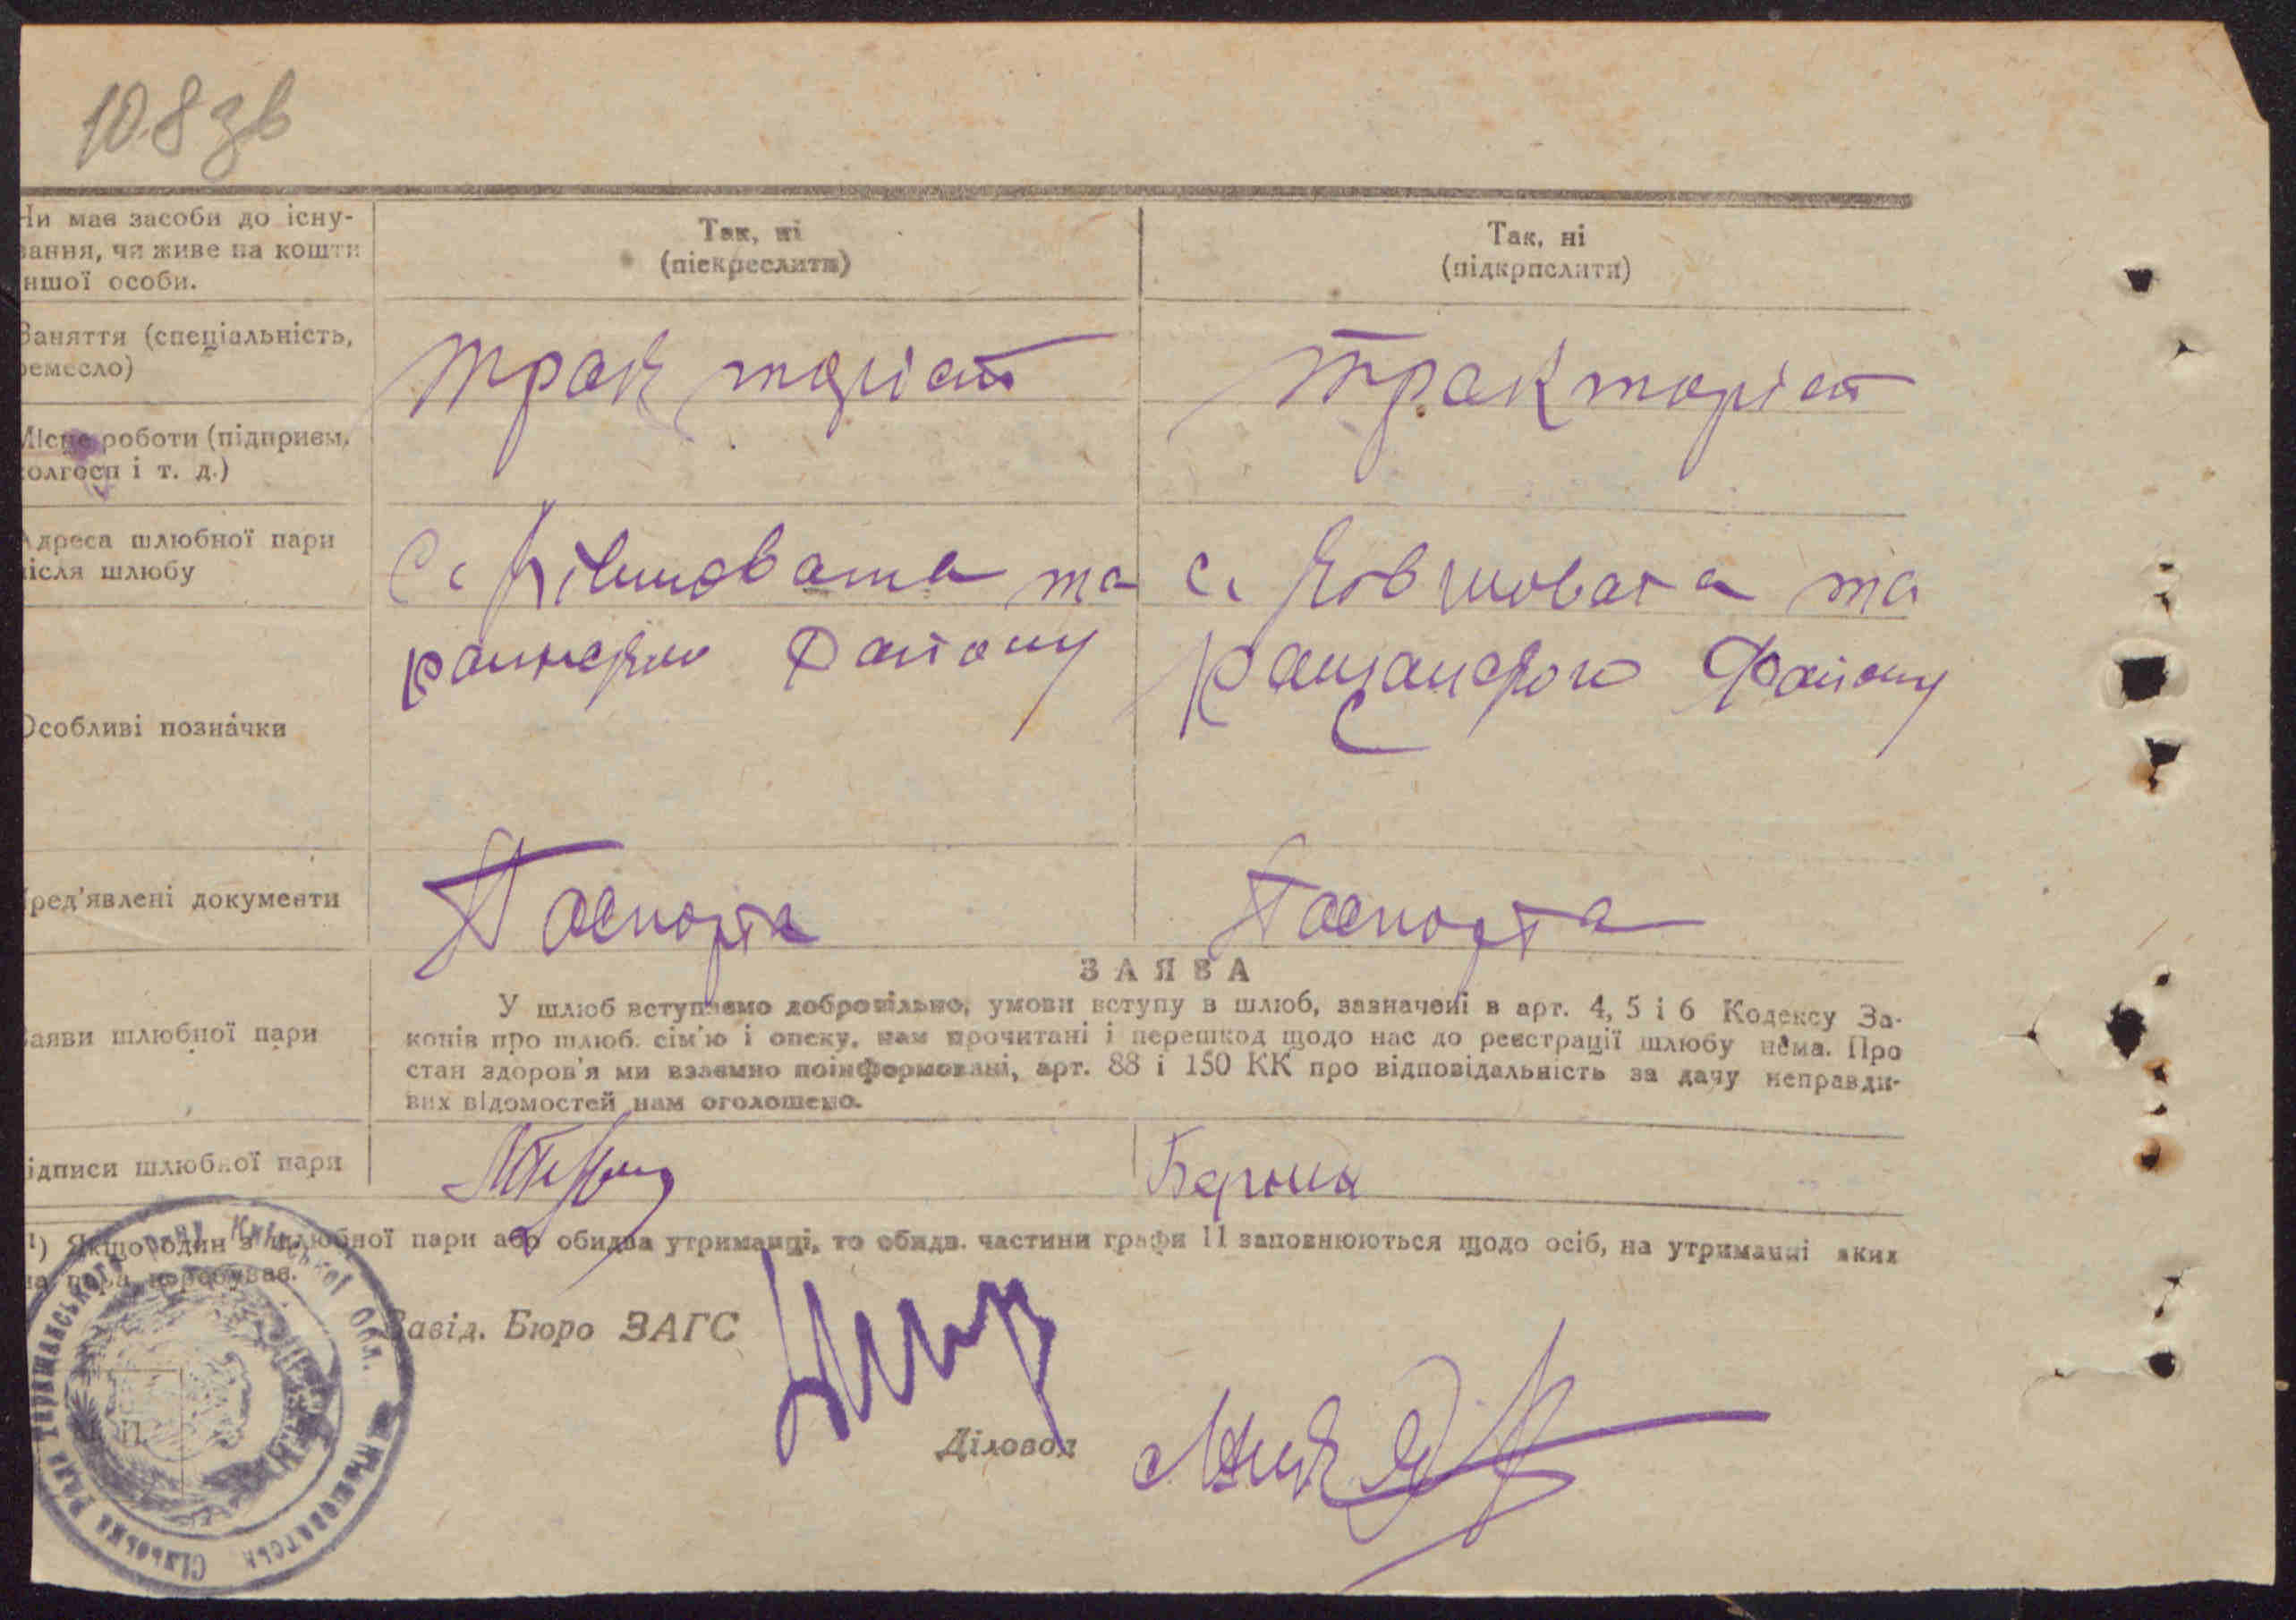 108 зв
Чи має засоби до існу-
вання, чи живе на кошти
іншої особи.
Так, ні
(піскреслити)
Так, ні
(підкрпслити)
Заняття (спеціальність,
ремесло)
тракторіст
тракторіст
Місце роботи (підприєм,
колгосп і т. д.)
Адреса шлюбної пари
після шлюбу
с. Ківшовата та
с. Ківшовата та
району
району
Особливі позначки
Пред'явлені документи
Паспорта
Паспорта
Заяви шлюбної пари
ЗАЯВА
У шлюб вступаємо добровільно, умови вступу в шлюб, зазначені в арт. 4, 5 і 6 Кодексу За-
конів про шлюб, сім'ю і опеку, нам прочитані і перешкод щодо нас до реєстрації шлюбу нема. Про
стан здоров'я ми взаємно поінформовані, арт. 88 і 150 КК про відповідальність за дачу неправди-
вих відомостей нам оголошено.
Підписи шлюбної пари
1) Якщо один з шлюбної пари або обидва утриманці, то обидв. частини графи 11 заповнюються щодо осіб, на утриманні яких
ця пара перебуває.
Завід. Бюро ЗАГС
Діловод
М. П.
Сільська Рада Таращанського р-ну Київської Обл.